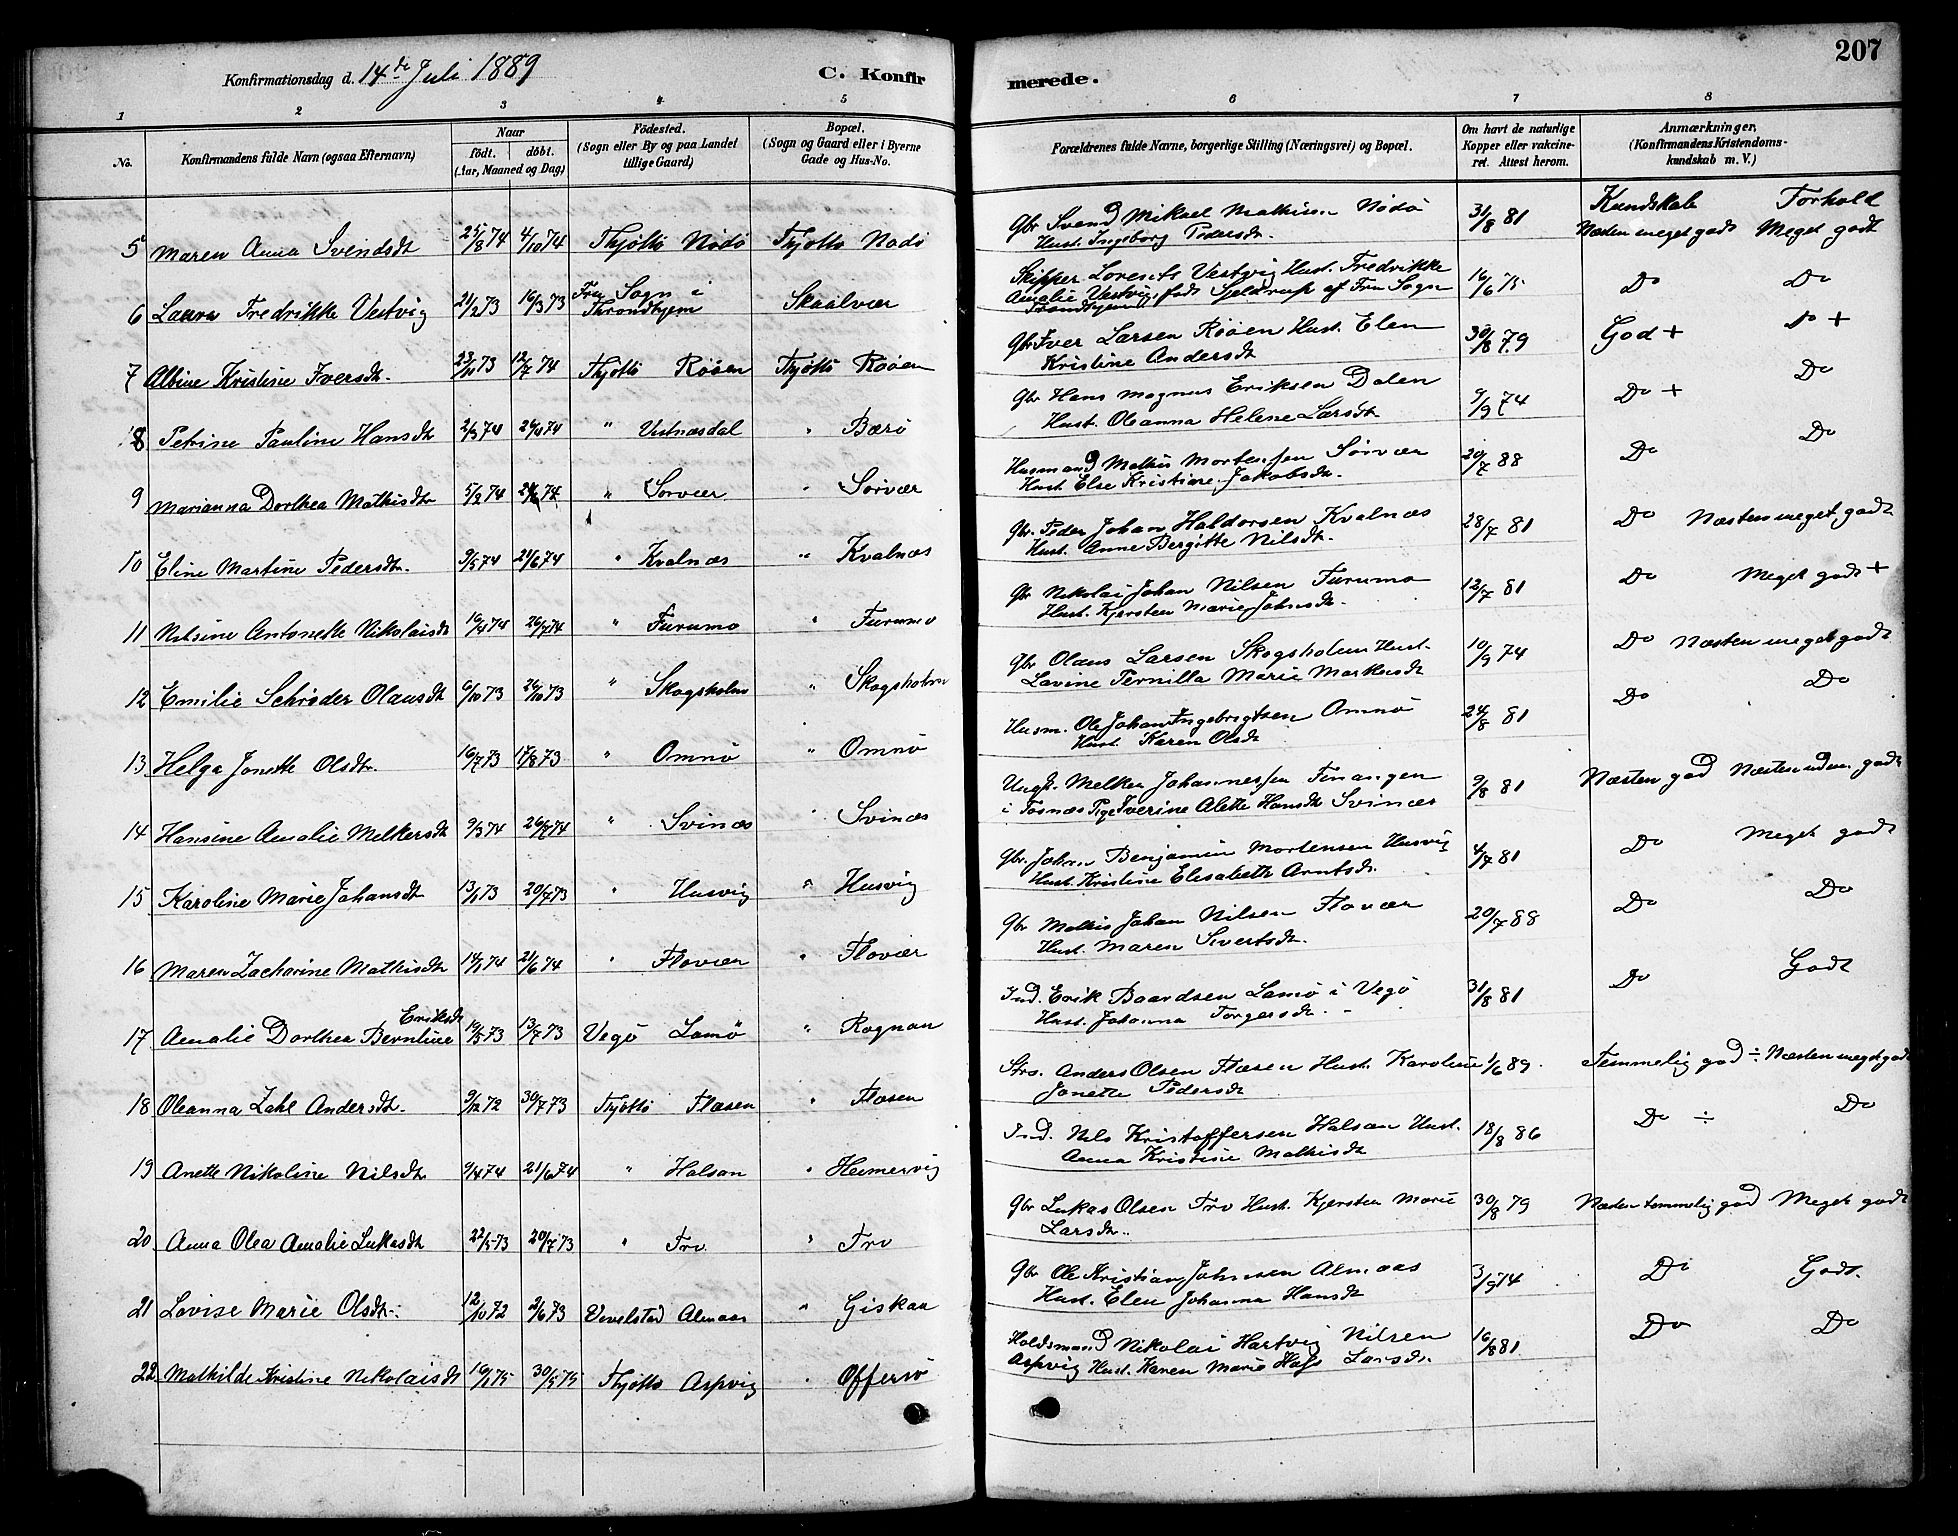 207
Konfirmationsdag d. 14de Juli 1889 C. Konfirmerede.
1 2 3 4 5 6 7 8
No. Konfirmandens fulde Navn (ogsaa Efternavn) Naar født. døbt. (Aar, Maaned og Dag) Fødested. (Sogn eller By og paa Landet tillige Gaard) Bopæl. (Sogn og Gaard eller i Byerne Gade og Hus-No. Forældrenes fulde Navne, borgerlige Stilling (Næringsvei) og Bopæl. Om havt de naturlige Kopper eller vakcineret. Attest herom. Anmærkninger, (Konfirmandens Kristendomskundskab m. V.)
Kundskab Forhold
5 Maren Anna Svendsdt 25/8 74 4/10 74 Thjøttø Nødø Thjøttø Nødø Gbr Svend Mikael Mathisen Nødø Hust. Ingeborg Pedersdt. 31/8 81 Næsten meget godt Meget godt
6 Laura Fredrikke Vestvig 21/2 73 16/3 73 Fru Sogn i Throndhjem Skaalvær Skipper Lorents Vestvig Hust. Fredrikke Amalie Vestvig, født Sjeldrup af Fru Sogn Trondhjem 16/6 75 Do Do
7 Albine Kristine Iversdt. 23/11 73 12/7 74 Thjøttø Røøen Thjøttø Røøen Gbr Iver Larsen Røøen Hust. Elen Kristine Andersdt 30/8 79 God + Do +
8 Petrine Pauline Hansdt 2/3 74 26/4 74 " Vestnæsdal " Bærø Gbr Hans Magnus Eriksen Dalen Hust. Oleanna Helene Larsdt 9/9 74 Do + Do
9 Marianna Dorthea Mathisdt 5/2 74 21/6 74 " Sørvær " Sørvær Husmand Mathis Mortensen Sørvær Hust. Else Kristiane Jakobsdt. 20/7 88 Do Do
10 Eline Martine Pedersdt. 9/5 74 21/6 74 " Kvalnæs " Kvalnæs Gbr. Peder Johan Haldorsen Kvalnæs Hust. Anne Bergitte Nilsdt. 28/7 81 Do Næsten meget godt
11 Nilsine Antonette Nikolaisdt 16/4 74 26/7 74 " Furumo " Furumo Gbr Nikolai Johan Nilsen Furumo Hust. Kjersten Marie Johnsdt. 12/7 81 Do Meget godt +
12 Emilie Schrøder Olausdt 6/10 73 26/10 73 " Skogsholm " Skogsholm Gbr Olaus Larsen Skogsholm Hust. Lavine Pernilla Marie Markusdt 10/9 74 Do Næsten meget godt
13 Helga Jonette Olsdt. 16/7 73 17/8 73 " Omnø " Omnø Husm. Ole Johan Ingebrigtsen Omnø Hust. Karen Olsdt 24/8 81 Do Do
14 Hansine Amalie Melkersdt 9/3 74 26/7 74 " Svinæs " Svinæs Ungk. Melker Johannessen Finangen i Fosnæs Pige Iverine Alette Hansdt Svinæs 9/8 81 Næsten god Næsten uden godt
15 Karoline Marie Johansdt 13/1 73 20/7 73 " Husvig " Husvig Gbr. Johan Benjamin Mortensen Husvig Hust. Kristine Elisabeth Arntsdt. 4/7 81 Do Meget godt
16 Maren Zacharine Mathisdt 14/1 74 21/6 74 " Flovær " Flovær Gbr Mathis Johan Nilsen Flovær Hust. Maren Sivertsdt. 20/7 88 Do Do
17 Amalie Dorthea Berntine Eriksdt 19/5 73 13/7 73 Vegø Lamø " Rognan Ind. Erik Baardsen Lamø i Vegø Hust. Johanna Torgersdt. 31/8 81 Do Godt
18 Oleanna Zahl Andersdt. 9/12 72 30/7 73 Thjøttø Flæsen " Flæsen Strs. Anders Olsen Flæsen Hust. Karoline Jonette Pedersdt 1/6 89 Temmelig god ÷ Næsten meget godt
19 Anette Nikoline Nilsdt 9/4 74 21/6 74 " Halsan " Hemervig Ind. Nils Kristoffersen Halsan Hust. Anna Kristine Mathisdt 18/8 86 Do ÷ Do
20 Anna Olea Amalie Lukasdt 22/5 73 20/7 73 " Tro " Tro Gbr Lukas Olsen Tro Hust. Kjersten Marie Larsdt. 30/8 79 Næsten temmelig god Meget godt
21 Lovise Marie Olsdt. 12/10 72 2/6 73 Vevelstad Almaas " Giskaa Gbr Ole Kristian Johnsen Almaas Hust. Elen Johanna Hansdt 3/9 74 Do Godt.
22 Mathilde Kristine Nikolaisdt 16/1 75 30/5 75 Thjøttø Aspvig " Offersø Holdsmand Nikolai Hartvig Nilsen Aspvig Hust. Karen Marie Larsdt. 16/8 81 Do Do